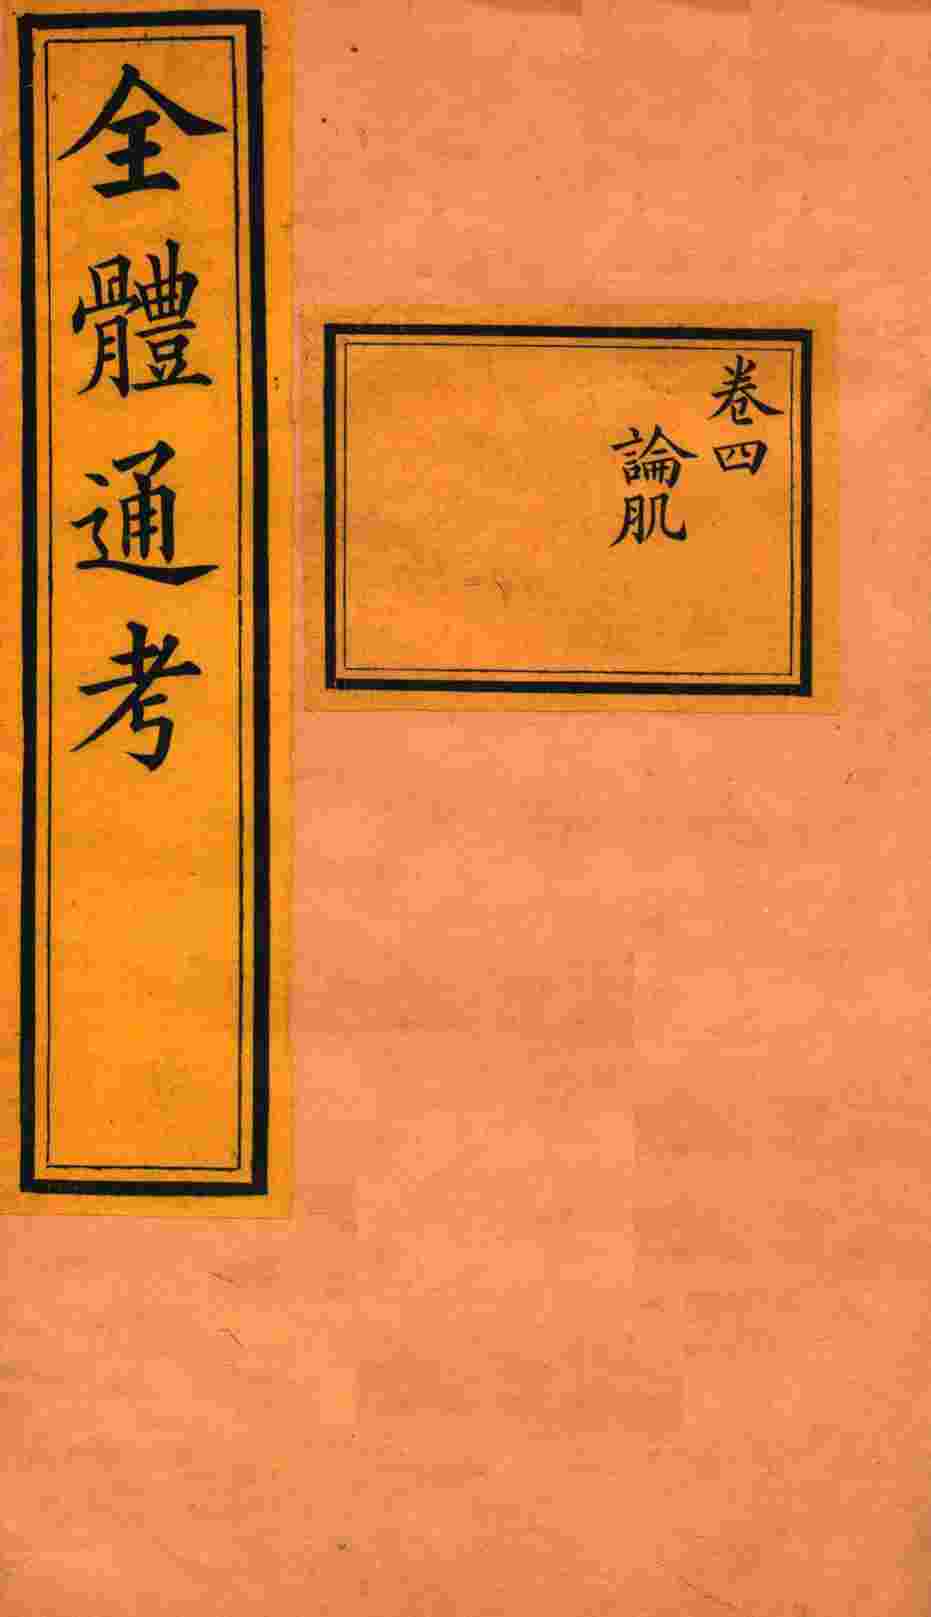 全體通考
卷四
論肌